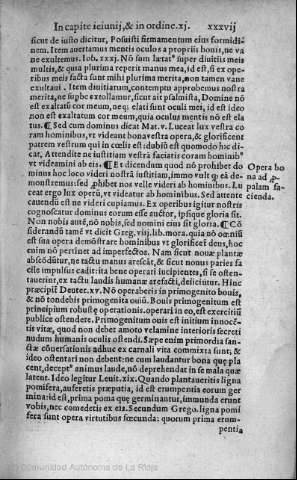 In capite ieiunij, & in ordine. xj. xxxvij
sicut de iusto dicitur, Posuisti firmamentum eius formidi-
nem. Item auertamus mentis oculos a proprijs bonis, ne va
ne exultemus. Iob. xxxj. Nō sum lætatˀ super diuitijs meis
multis, & quia plurima reperit manus mea, id est, si ex ope-
ribus meis facta sunt mihi plurima merita, non tamen vane
exultaui. Item dimittamus, contempto approbemus nostra
merita, ne supbe extollamur, sicut ait psalmista, Domine nō
est exaltatū cor meum, neqꝫ elati sunt oculi mei, id est ideo
non est exaltatum cor meum, quia oculus mentis nō est ela
tus. ¶ Sed cum dominus dicat Mat. v. Luceat lux vestra co
ram hominibus, vt videant bona vestra opera, & glorificent
patrem vestrum qui in cœlis est: dubiū est quomodo hic di-
cat, Attendite ne iustitiam vestrā faciatis coram hominibˀ
vt videamini ab eis. ¶ Et dicendum quod nō prohibet do-
minus hoc loco videri nostrā iustitiam, immo vult qꝫ ea de-
monstremus: sed ꝓhibet nos velle videri ab hominibus. Lu
ceat ergo lux opera, vt videatur ab hominibus. Sed attente
cauendū est ne videri cupiamus. Ex operibus igitur nostris
cognoscatur dominus eorum esse auctor, ipsique gloria sit.
Non nobis autē, nō nobis, sed nomini eius sit gloria. ¶ Cō
siderandū tamē vt dicit Greg. viij. lib. mora. quia nō oēnino
est sua opera demōstrare hominibus vt glorificet deus, hoc
enim nō pertinet ad imperfectos. Nam sicut nouæ plantæ
abscōditur, ne tactu manus arescat, & sicut nouus paries fa
cile impulsus cadit: ita bene operari incipientes, si se osten-
tauerint, ex tactu laudis humanæ arefacti, deficiūtur. Hinc
præcipit Deuter. xv. Nō operaberis in primogenito bouis,
& nō tondebis primogenita ouiū. Bouis primogenitum est
principium robustæ operationis. operari in eo, est exercitiū
publice ostendere. Primogenitum ouis est initium innocē-
tis vitæ, quod non debet amoto velamine interioris secreti
nudum humanis oculis ostendi. Sæpe enim primordia san-
ctæ cōuersationis adhuc ex carnali vita commixta sunt, &
ideo ostentari non debent: ne cum laudantur bona quæ pla
cent, deceptˀ animus laude, nō deprehendat in se mala quæ
latent. Ideo legitur Leuit. xix. Quando plantaueritis ligna
pomifera, auferetis præputia, id est erumpentia eorum ger
mina: id est, prima poma que germinantur, immunda erunt
vobis, nec comedetis ex eis. Secundum Grego. ligna pomi
fera sunt opera virtutibus fœcunda: quorum prima erum-
pentia
Opera bo
na ad ꝓ
palam fa-
cienda.
Comunidad Autónoma de La Rioja